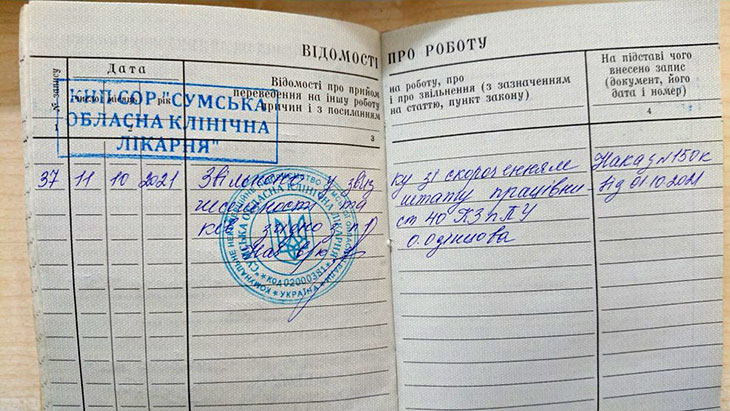 ВІДОМОСТІ ПРО РОБОТУ
№ запису
Дата
число місяць рік
Відомості про прийом на роботу, про
переведення на іншу роботу і про звільнення (з зазначенням
причин і з посиланням на статтю, пункт закону)
На підставі чого
внесено запис
(документ, його
дата і номер)
2 3 4
КНП СОР "СУМСЬКА
ОБЛАСНА КЛІНІЧНА
ЛІКАРНЯ"
37 11 10 2021 Звільнено у звяз ку зі скороченням Наказ №150к
чисельності та штату працівни від 01.10.2021
ків згідно з п.1 ст 40 КЗпПУ
О.Одінцова
"СУМСЬКА ОБЛАСНА КЛІНІЧНА ЛІКАРНЯ"
КОМУНАЛЬНЕ
* УКРАЇНА *